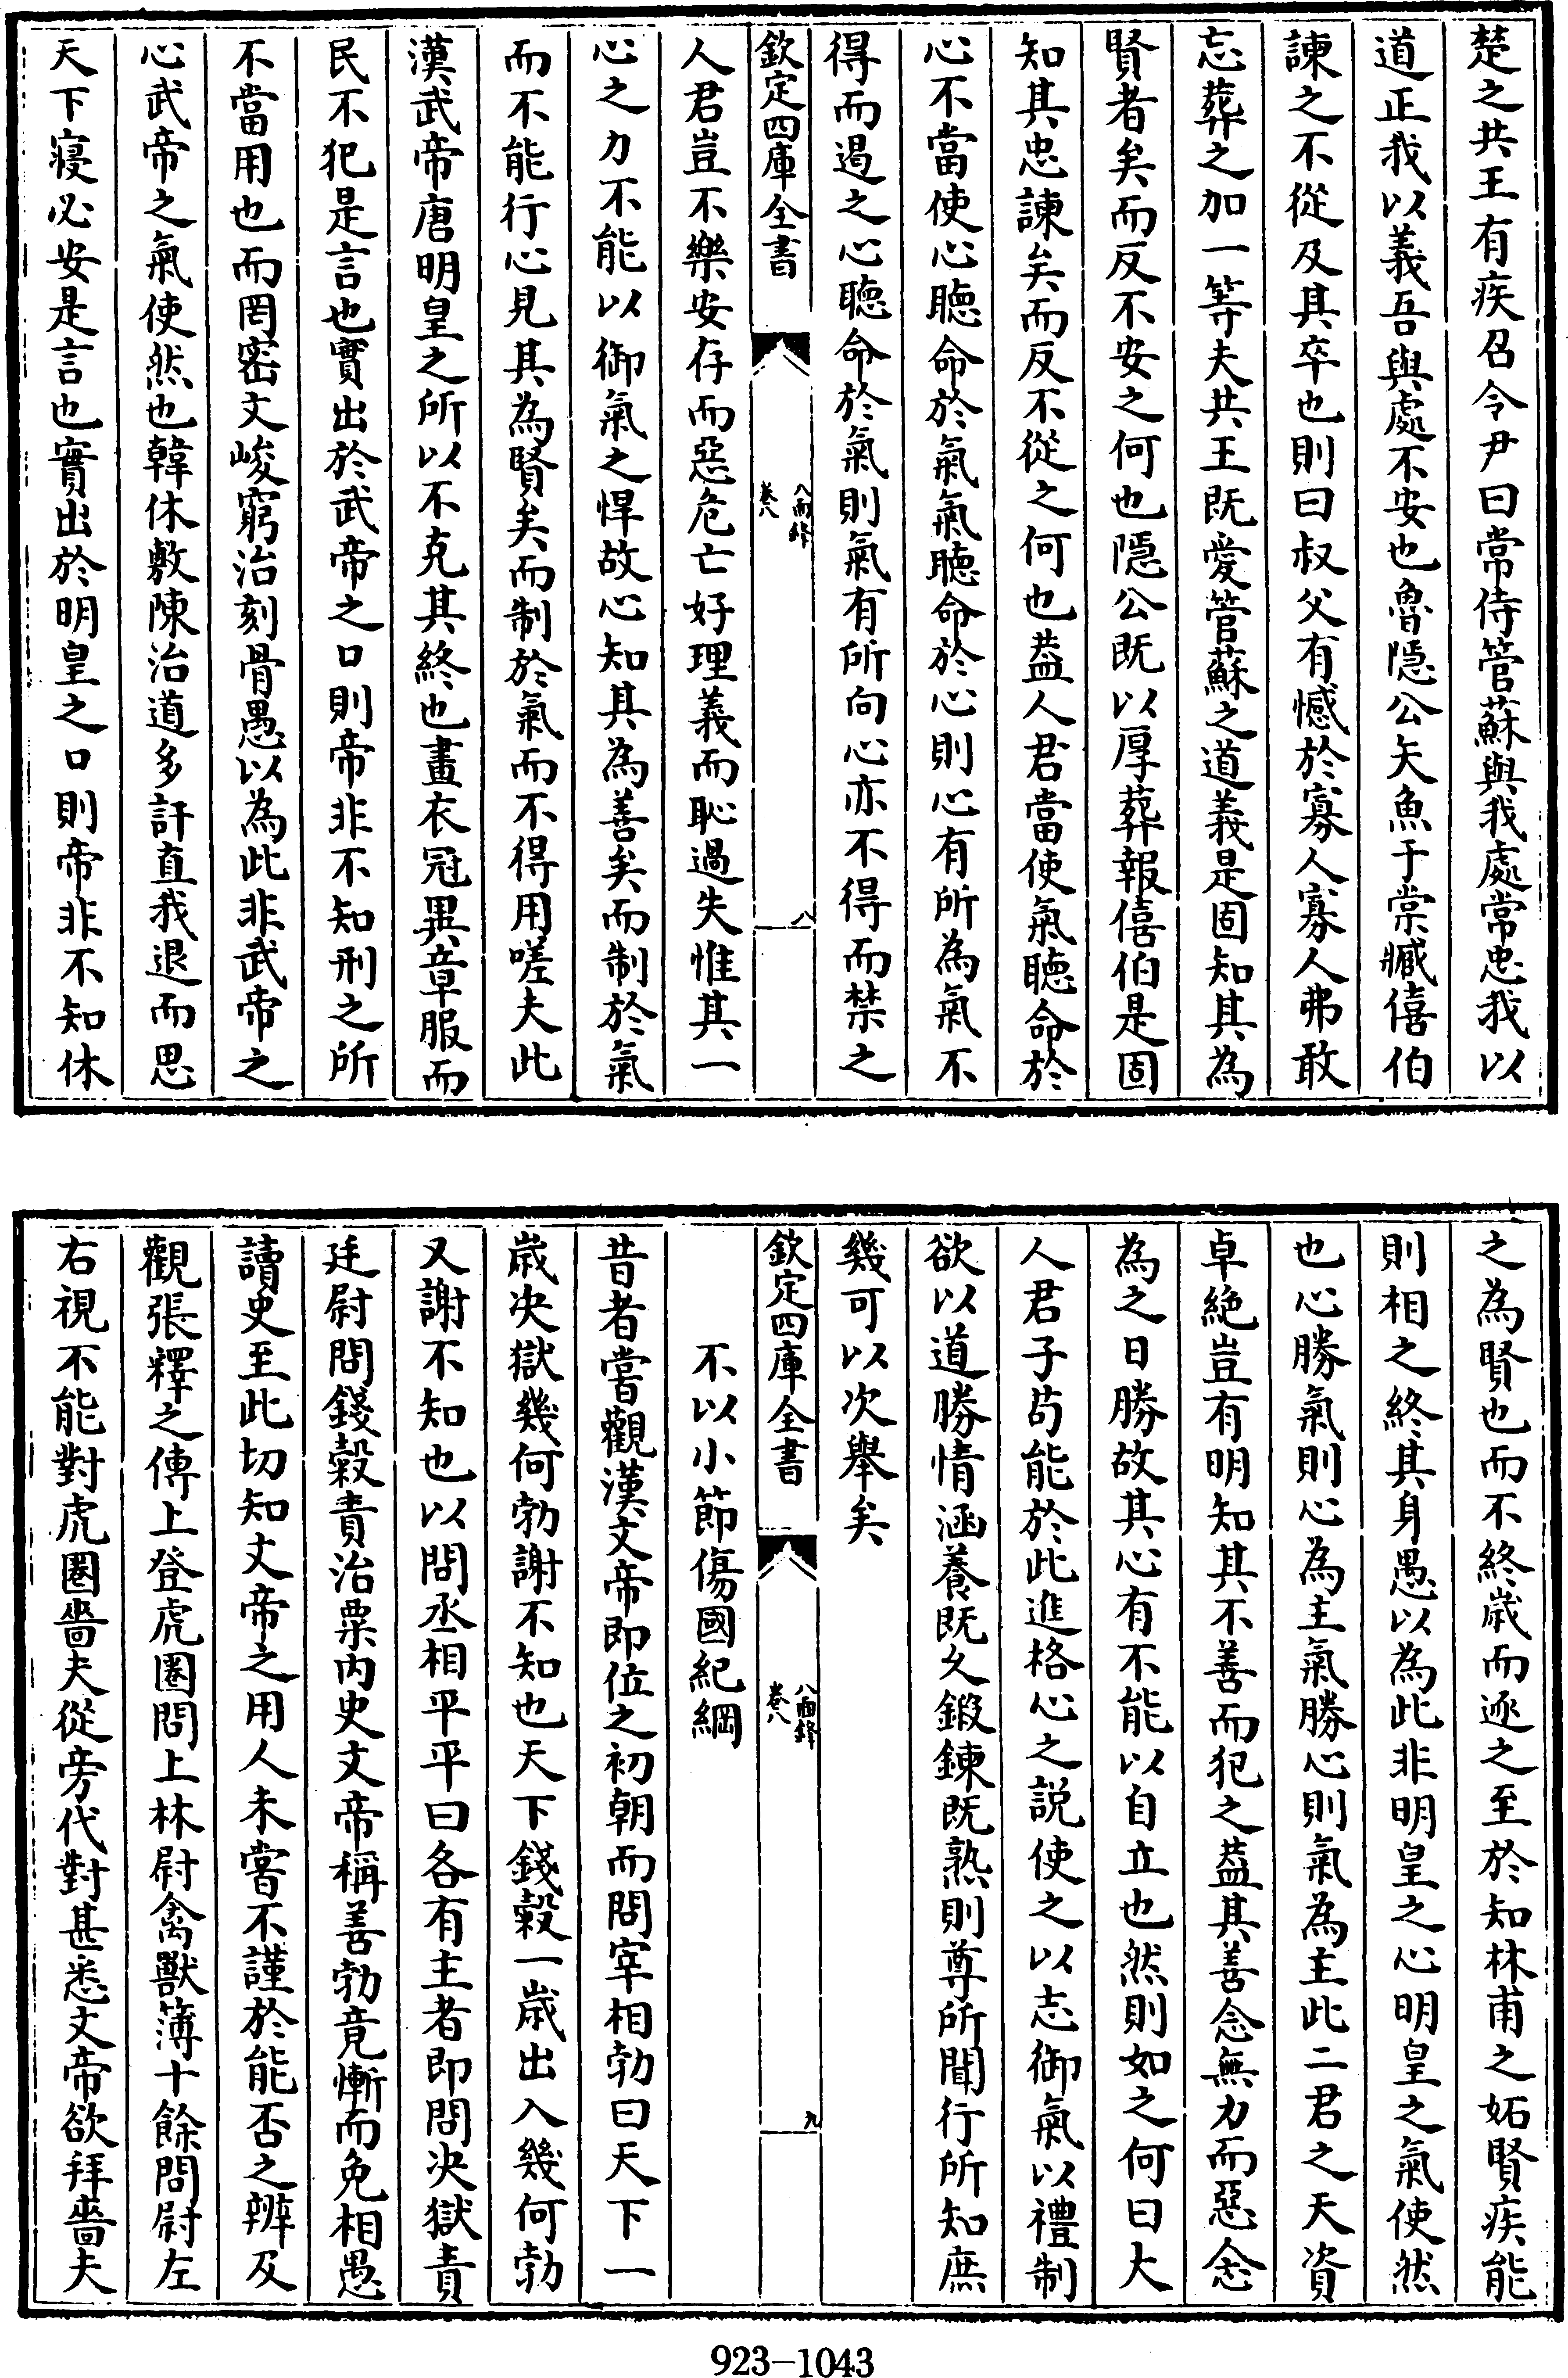 楚之共王有疾召令尹曰常侍管蘇與我處常忠我以
道正我以義吾與處不安也魯隱公矢魚于棠臧僖伯
諫之不從及其卒也則曰叔父有憾於寡人寡人弗敢
忘葬之加一等夫共王既愛管蘇之道義是固知其為
賢者矣而反不安之何也隱公既以厚葬報僖伯是固
知其忠諫矣而反不從之何也葢人君當使氣聽命於
心不當使心聽命於氣氣聽命於心則心有所為氣不
得而遏之心聽命於氣則氣有所向心亦不得而禁之
欽定四庫全書
八面鋒
卷八
八
人君豈不樂安存而惡危亡好理義而恥過失惟其一
心之力不能以御氣之悍故心知其為善矣而制於氣
而不能行心見其為賢矣而制於氣而不得用嗟夫此
漢武帝唐明皇之所以不克其終也畫衣冠異章服而
民不犯是言也實出於武帝之口則帝非不知刑之所
不當用也而罔密文峻窮治刻骨愚以為此非武帝之
心武帝之氣使然也韓休敷陳治道多訐直我退而思
天下寢必安是言也實出於明皇之口則帝非不知休
之為賢也而不終歲而逐之至於知林甫之妬賢疾能
則相之終其身愚以為此非明皇之心明皇之氣使然
也心勝氣則心為主氣勝心則氣為主此二君之天資
卓絶豈有明知其不善而犯之葢其善念無力而惡念
為之日勝故其心有不能以自立也然則如之何曰大
人君子苟能於此進格心之説使之以志御氣以禮制
欲以道勝情涵養既久鍛鍊既熟則尊所聞行所知庶
幾可以次舉矣
欽定四庫全書
八面鋒
卷八
九
不以小節傷國紀綱
昔者嘗觀漢文帝即位之初朝而問宰相勃曰天下一
歲决獄幾何勃謝不知也天下錢穀一歲出入幾何勃
又謝不知也以問丞相平平曰各有主者即問决獄責
廷尉問錢穀責治粟内史文帝稱善勃竟慚而免相愚
讀史至此切知文帝之用人未嘗不謹於能否之辨及
觀張釋之傳上登虎圈問上林尉禽獸簿十餘問尉左
右視不能對虎圈嗇夫從旁代對甚悉文帝欲拜嗇夫
923-1043